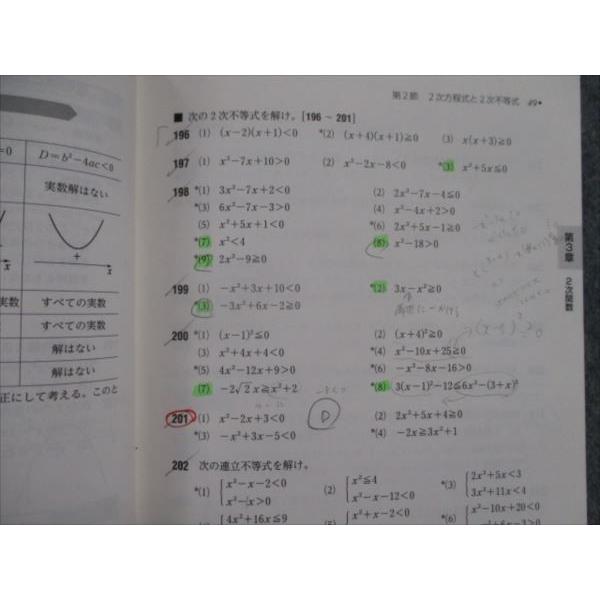 第2節 2次方程式と2次不等式 49
■ 次の2次不等式を解け。[196 ~ 201]
196 (1) (x-2)(x+1)<0 *(2) (x+4)(x+1)≧0 (3) x(x+3)≧0
197 (1) x²-7x+10>0 (2) x²-2x-8<0 *(3) x²+5x≦0
198 *(1) 3x²-7x+2<0 (2) 2x²-7x-4≦0
*(3) 6x²-7x-3>0 (4) x²-4x+2>0
(5) x²+5x+1<0 *(6) 2x²+5x-1≧0
*(7) x²<4 (8) x²-18>0
*(9) 2x²-9≧0
199 (1) -x²+3x+10<0 *(2) 3x-x²≧0
*(3) -3x²+6x-2≧0
200 *(1) (x-1)²≦0 (2) (x+4)²≧0
(3) x²+4x+4<0 *(4) x²-10x+25≧0
*(5) 4x²-12x+9>0 *(6) -x²-8x-16>0
(7) -2√2x≧x²+2 *(8) 3(x-1)²-12≦6x²-(3+x)²
201 *(1) x²-2x+3<0 (2) 2x²+5x+4≧0
*(3) -x²+3x-5<0 *(4) -2x≧3x²+1
D
202 次の連立不等式を解け。
*(1) x²-x-2<0 (2) x²≦4 *(3) 2x²+5x<3
x²-x>0 x²-x-12<0 3x²+11x<4
4x²+16x≦9 x²+x-2<0 *(6) x²-10x+20<0
第3章 2次関数
=0 D=b²-4ac<0
実数解はない
+
x x
実数 すべての実数
すべての実数
解はない
解はない
正にして考える。このと